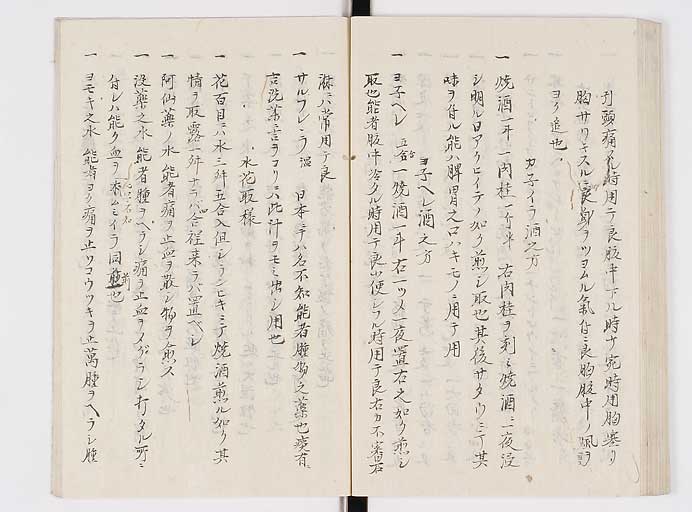 刋頭痛ノ時用テ良腹中下ル時サ宛時用胸塞リ
胸サリキスル良卿ヲツヨムル氣付ニ良胸腹中ノ風ヲ
ヨク追也
カ子イラ酒之方
一 燒酒一斗一肉桂一斤半 右肉桂ヲ刻ミ燒酒ニ一夜浸
シ明ル日アクヒイテノ如ク煎シ取也其後サタウニテ其
味ヲ付ル能ハ脾胃之口ハキモノニ用テ用
ヨ子ヘレ酒之方
一 ヨ子ヘレ 五合 一燒酒一斗 右一ツメ一夜置右之如ク煎シ
取也能者腹中冷タル時用テ良小便シフル時用テ良右カ不審石
淋ニ常用テ良
一 サルフレシラ 湿 日本ニテハ名不知能者腫物之藥也痰有
言洗藥ニ吉ヲコリニ此汁ヲモミ出シ用也
水花取様
一 花百目ニ水三舛五合入但シランヒキニテ燒酒煎ル如ク其
情ヲ取露一舛ナラハ合程来ラハ置ヘシ
一 阿仙藥ノ水 能者痛ヲ止血ヲ散シ物ヲ愈ス
一 没藥之水 能者腫ヲヘラシ痛ヲ止血ヲノゲラシ打タル所ニ
付レハ能ク血ヲ本ムミイラ同前也
一 ヨモキ之水 能者ヨク痛ヲ止ツコウツキヲ止萬腫ヲヘラシ腫